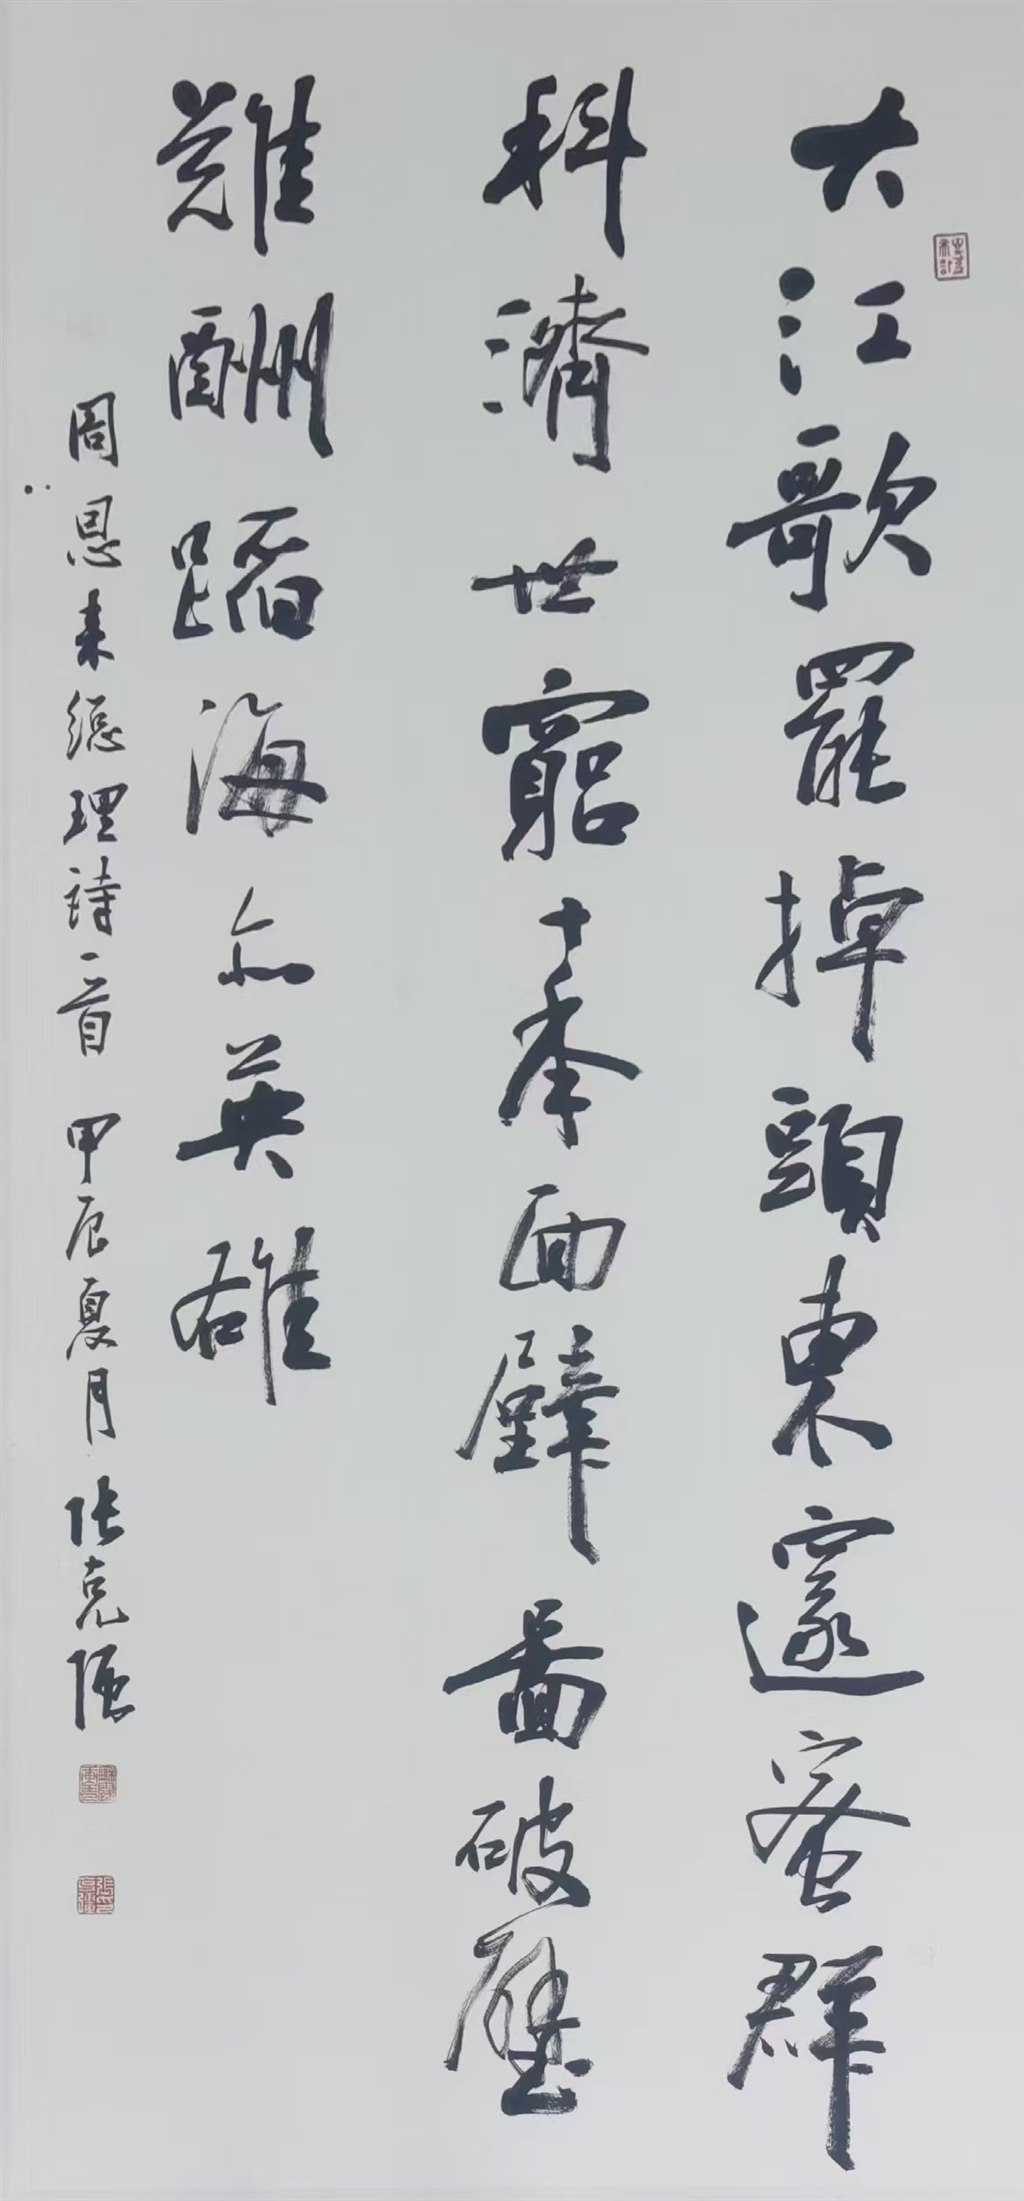 大江歌罷掉頭東邃蜜群
科濟世窮十秊面壁圖破壁
難酬蹈海亦英雄
周恩来總理詩一首 甲辰夏月 張克強